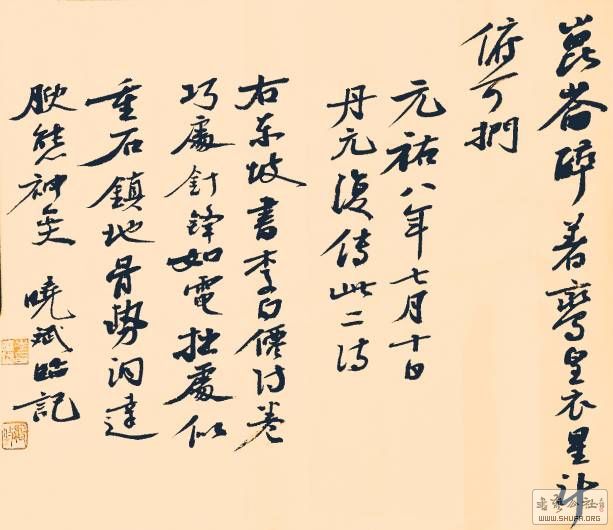 崑崙醉着鸞皇衣星斗
俯可捫
元祐八年七月十日
丹元復傳此二詩
右東坡書李白僊詩卷
巧處針鋒如電拙處似
重石鎮地骨勢洞達
腴態神 曉斌臨記
WWW.SHUFA.ORG